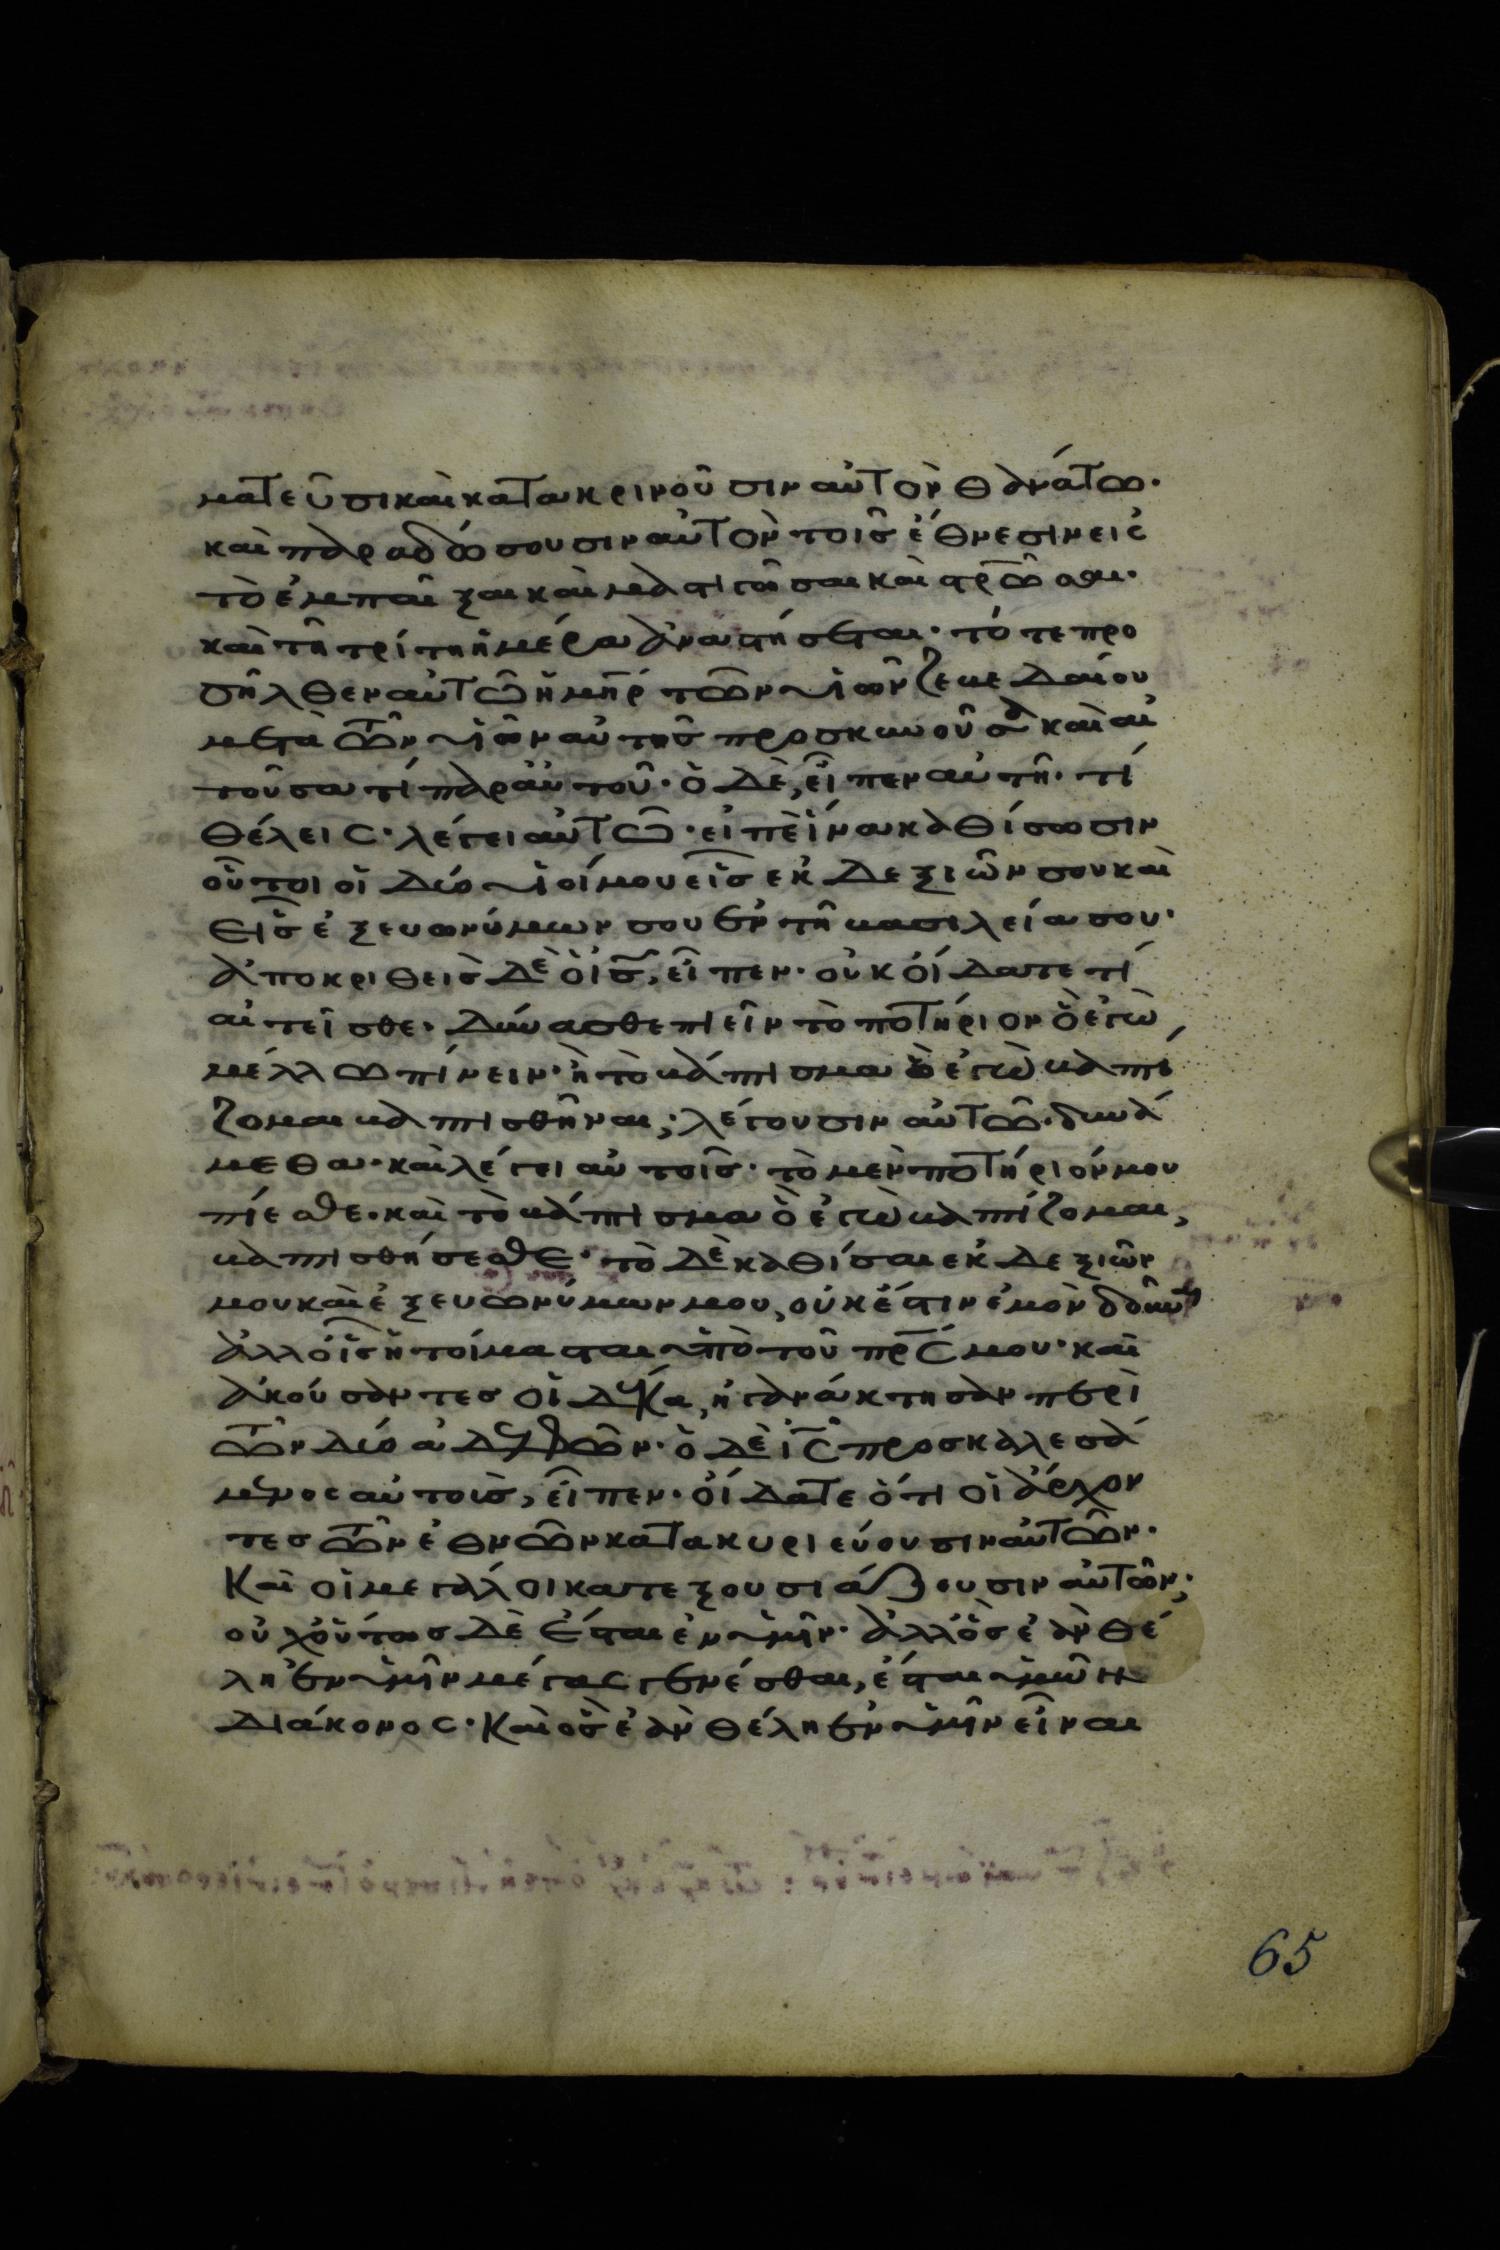 ματεῦσι καὶ κατακρινοῦσιν αὐτὸν θανάτω·
καὶ παραδώσουσιν αὐτὸν τοῖς ἔθνεσιν εἰς
τὸ ἐμπαῖξαι καὶ μαστιγῶσαι καὶ στρ̅ῶσαι·
καὶ τῆ τρίτη ἡμέρα ἀναστήσεται· τότε προ
σῆλθεν αὐτῶ ἡ μη̅ρ τῶν υἱῶν ζεβεδαίου
μετὰ τῶν υἱῶν αὐτῆς προσκυνοῦσα καὶ αἰ
τοῦσα τὶ παρ αὐτοῦ· ὁ δὲ, εἶπεν αὐτῆ· τί
θέλεις· λέγει αὐτῶ· εἰπὲ ἵνα καθίσωσιν
οὗτοι οἱ δύο υἱοί μου εἷς ἐκ δεξιῶν σου καὶ
εἷς ἐξ ευωνύμων σου ἐν τῆ βασιλεία σου·
ἀποκριθεὶς δὲ ὁ ι̅ς̅, εἶπεν· οὐκ οἴδατε τί
αἰτεῖσθε· δύνασθε πιεῖν τὸ ποτήριον ὃ ἐγὼ
μέλλω πίνειν· ἢ τὸ βάπτισμα ὃ ἐγὼ βαπτί
ζομαι βαπτισθῆναι; λέγουσιν αὐτῶ· δυνά
μεθα· καὶ λέγει αὐτοῖς· τὸ μὲν ποτήριόν μου
πίεσθε· καὶ τὸ βάπτισμα ὃ ἐγὼ βαπτίζομαι,
βαπτισθήσεσθε· τὸ δὲ καθίσαι ἐκ δεξιῶν
μου καὶ ἐξ ευωνύμων μου, οὐκ ἔστιν ἐμὸν δοῦναι
ἀλλ οἷς ἡτοίμασται ὑπὸ τοῦ πρ̅ς μου· καὶ
ἀκούσαντες οἱ δέκα, ἠγανάκτησαν περὶ
τῶν δύο ἀδελφῶν· ὁ δὲ ι̅ς̅ προσκαλεσά
μενος αὐτοὺς, εἶπεν· οἴδατε ὅτι οἱ ἄρχον
τες τῶν ἐθνῶν κατακυριεύουσιν αὐτῶν·
Καὶ οἱ μεγάλοι κατεξουσιάζουσιν αὐτῶν;
οὐχ οὕτως δὲ ἔσται ἐν ὑμῖν· ἀλλ ὃς ἐὰν θέ
λη ἐν ὑμῖν μέγας γενέσθαι, ἔσται ὑμῶν
διάκονος· Καὶ ὃς ἐὰν θέλη ἐν ὑμῖν εἶναι
65